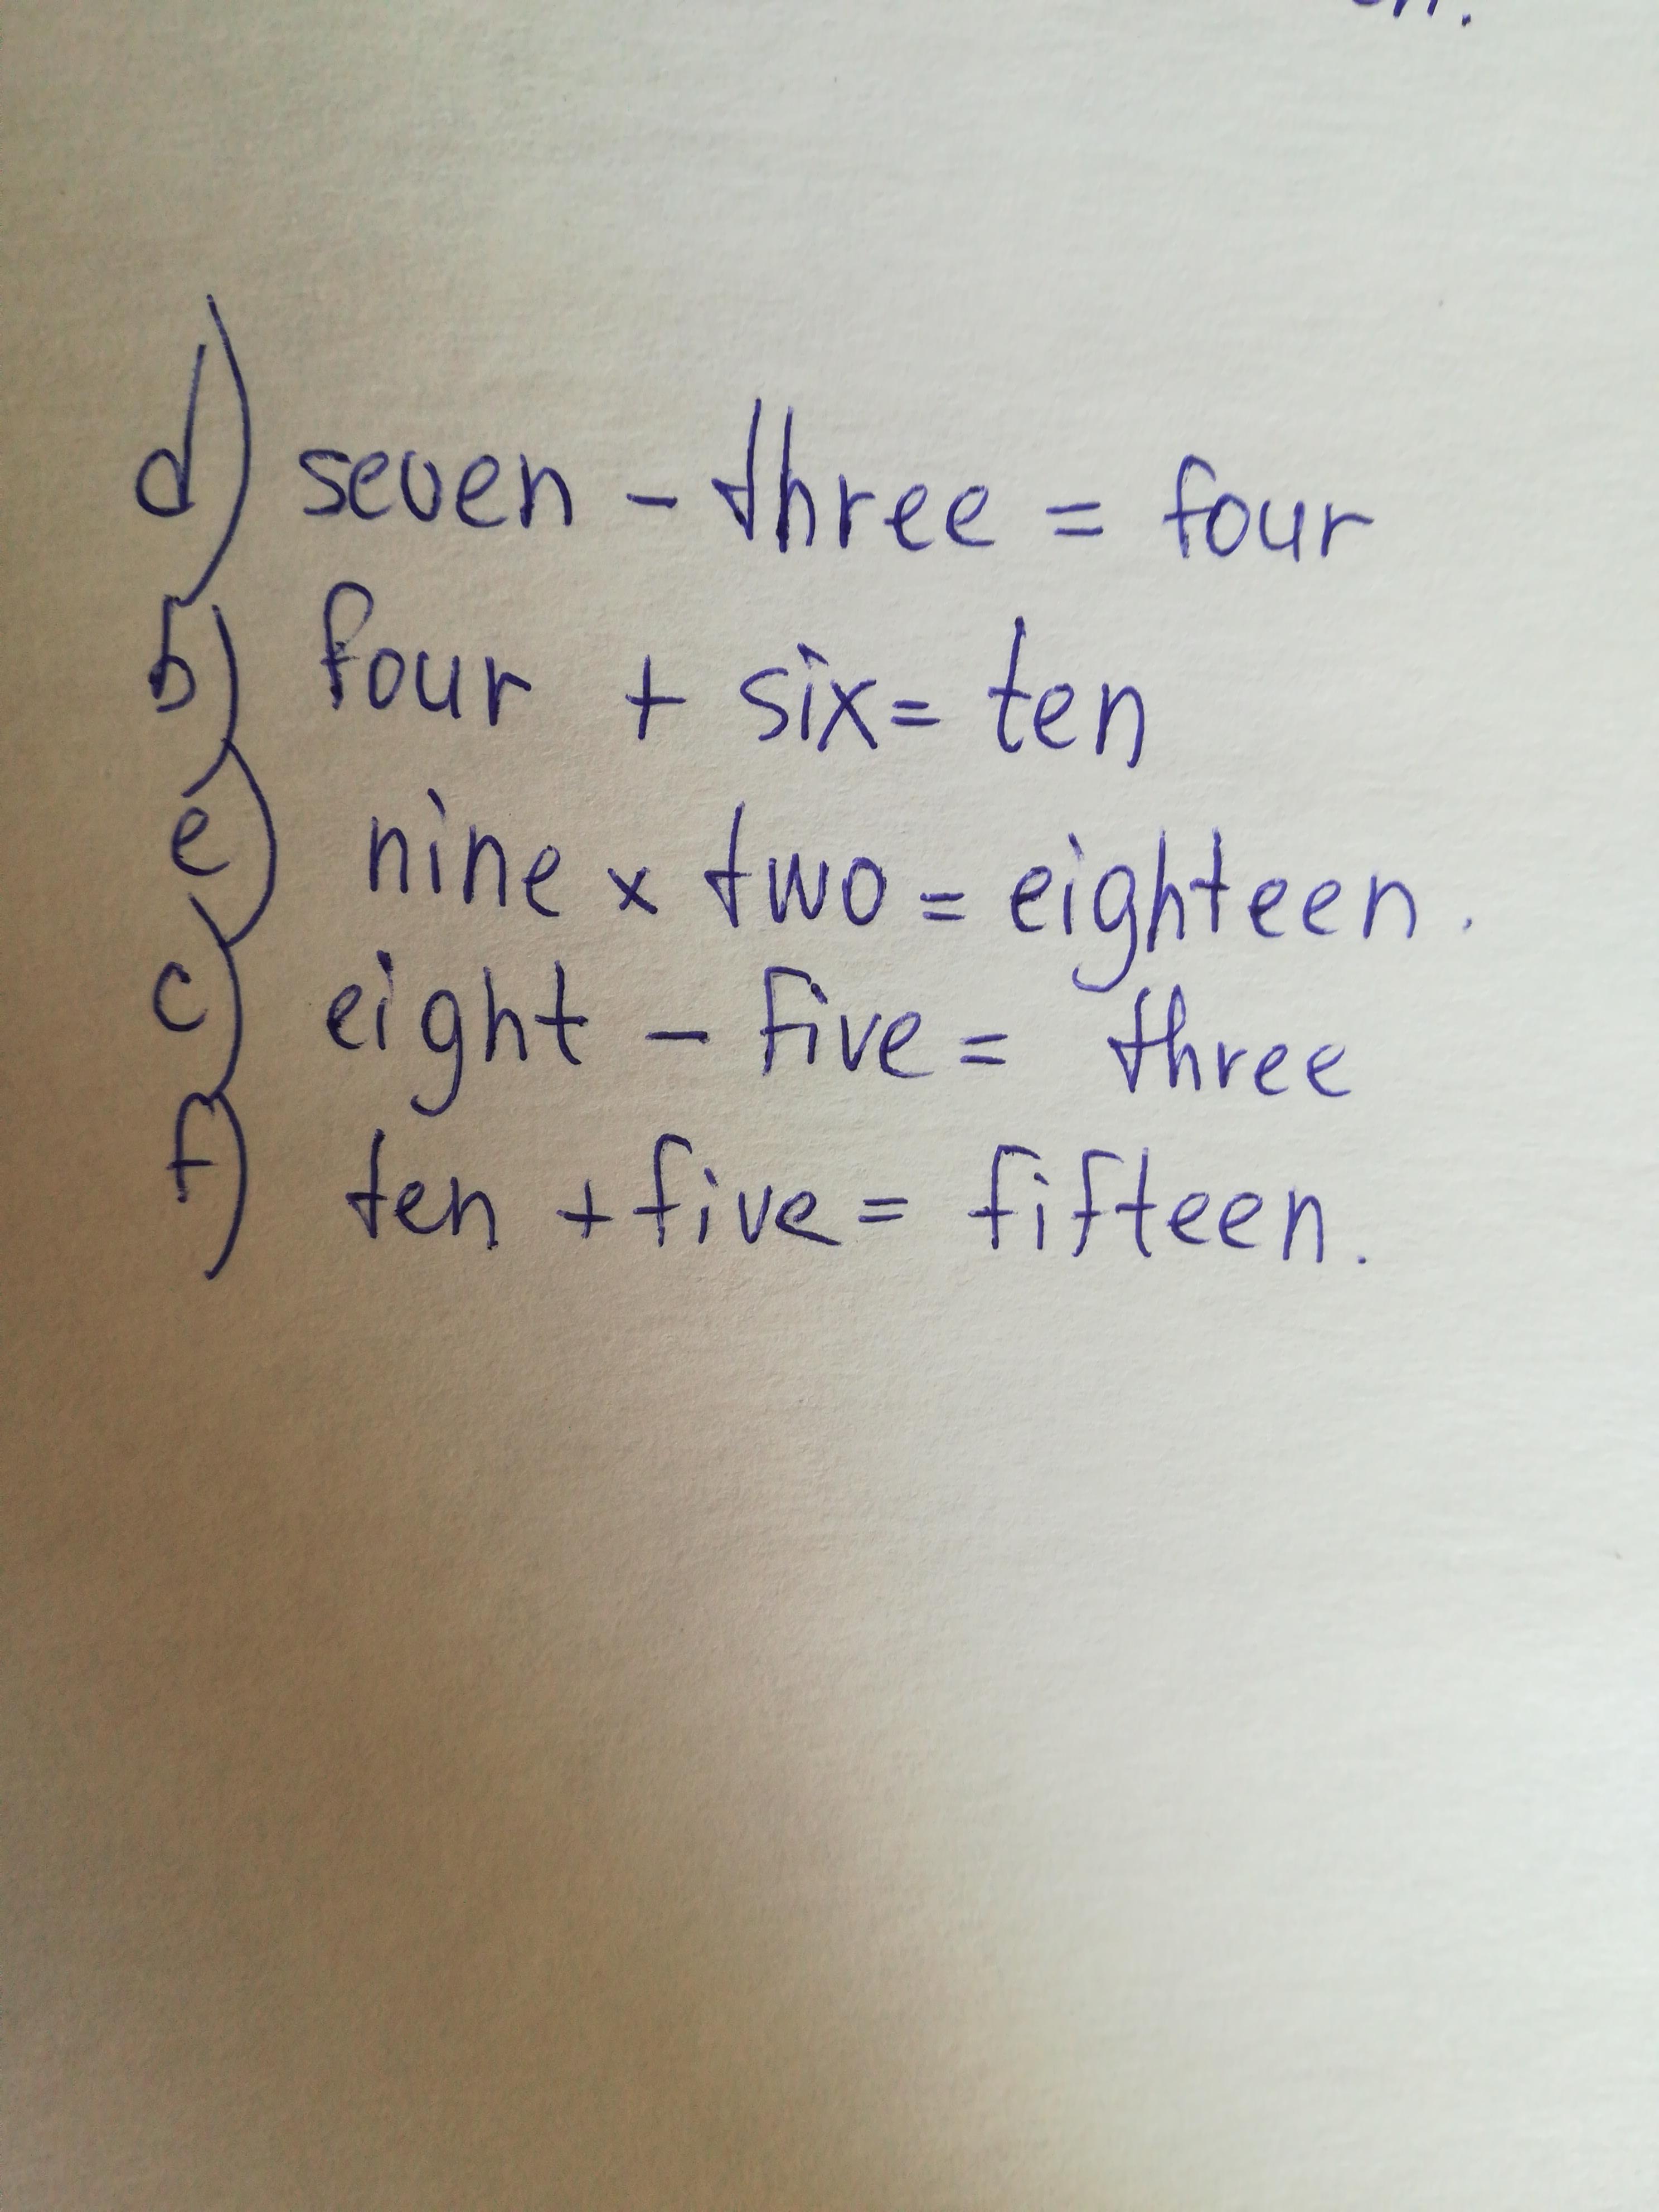 d) seven - three = four
b) four + six = ten
e) nine x two = eighteen.
c) eight - five = three
f) ten + five = fifteen.